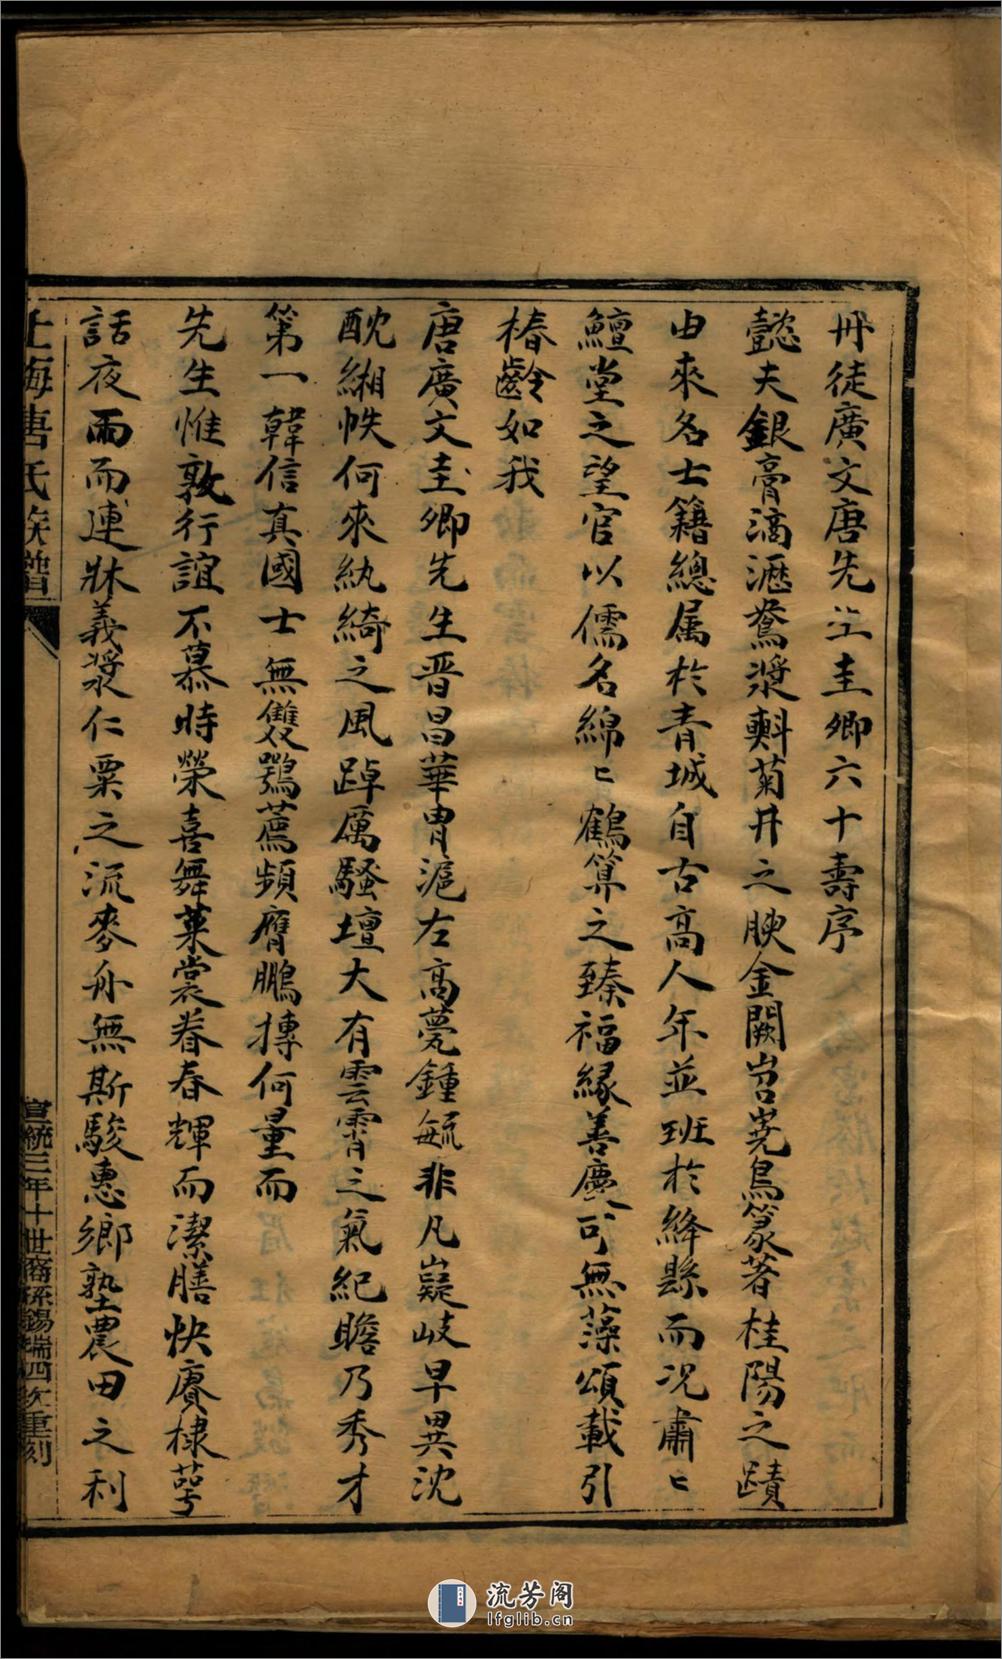 丹徒廣文唐先生圭卿六十壽序
懿夫銀膏滴瀝鴛漿㪺菊井之腴金闕岧嶤鳥篆著桂陽之蹟
由來名士籍總属於青城自古高人年並班於絳縣而況肅〻
鱣堂之望官以儒名綿〻鶴算之臻福緣善慶可無藻頌載引
椿齡如我
唐廣文圭卿先生晋昌華胄滬左高甍鍾毓非凡嶷岐早異沈
酖緗帙何來紈綺之風踔厲騷壇大有雲霄之氣紀瞻乃秀才
第一韓信真國士無雙鶚薦頻膺鵬摶何量而
先生惟敦行誼不慕時榮喜舞萊裳眷春輝而潔膳快賡棣萼
話夜雨而連牀義漿仁粟之流麥舟無斯駿惠鄉塾農田之利
上海唐氏族譜
宣統三年十世裔孫錫瑞四次重刻
流芳阁
lfglib.cn